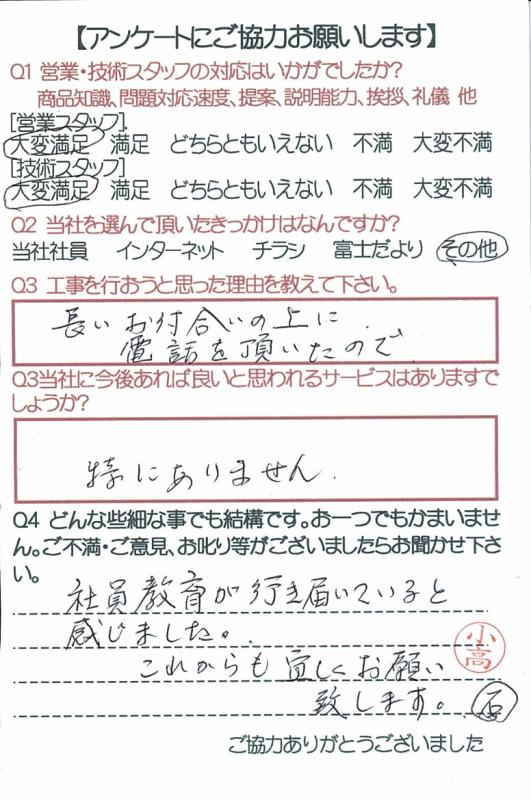 【アンケートにご協力お願いします】
Q1 営業・技術スタッフの対応はいかがでしたか?
商品知識、問題対応速度、提案、説明能力、挨拶、礼儀 他
[営業スタッフ]
大変満足 満足 どちらともいえない 不満 大変不満
[技術スタッフ]
大変満足 満足 どちらともいえない 不満 大変不満
Q2 当社を選んで頂いたきっかけはなんですか?
当社社員 インターネット チラシ 富士だより その他
Q3 工事を行おうと思った理由を教えて下さい。
長いお付合いの上に、
電話を頂いたので
Q3当社に今後あれば良いと思われるサービスはありますで
しょうか?
特にありません.
Q4 どんな些細な事でも結構です。お一つでもかまいませ
ん。ご不満・ご意見、お叱り等がございましたらお聞かせ下さ
い。
社員教育が行き届いていると
感じました。
小高
これからも宜しくお願い
致します。
石
ご協力ありがとうございました